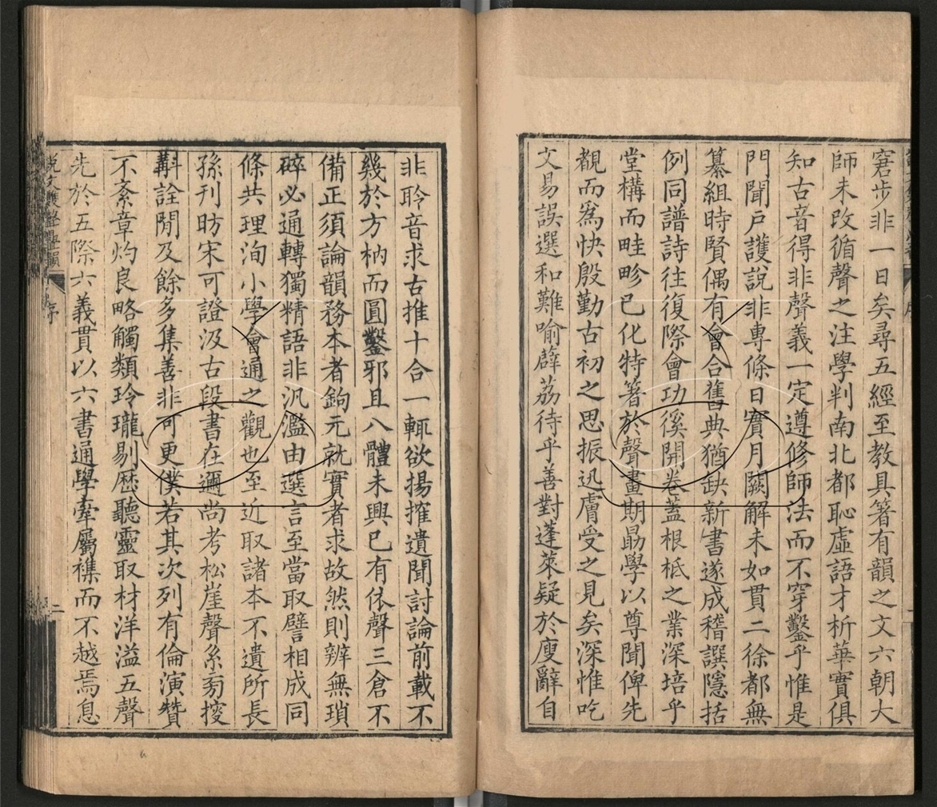 窘步非一日矣尋五經至教具箸有韻之文六朝大
師未改循聲之注學判南北都恥虛語才析華實俱
知古音得非聲義一定遵修師法而不穿鑿乎惟是
門聞戶護說非專條日實月闕解未如貫二徐都無
纂組時賢偶有會合舊典猶缺新書遂成稽譔隱括
例同譜詩往復際會功徯開卷蓋根柢之業深培乎
堂構而畦畛已化特箸於聲畫期勗學以尊聞俾先
覩而為快殷勤古初之思振迅膚受之見矣深惟吃
文易誤選和難喻薜荔待乎善對蓬萊疑於廋辭自
非聆音求古推十合一輒欲揚搉遺聞討論前載不
幾於方枘而圓鑿邪且八體未興已有依聲三倉不
備正須論韻務本者鉤元就實者求故然則辨無瑣
碎必通轉獨精語非汎濫由選言至當取譬相成同
條共理洵小學會通之觀也至近取諸本不遺所長
孫刊昉宋可證汲古段書在邇尚考松崖聲系旁搜
斠詮閒及餘多集善非可更僕若其次列有倫演贊
不紊章灼良略觸類玲瓏剔歷聽靈取材洋溢五聲
先於五際六義貫以六書通學牽屬襍而不越焉息
序
二